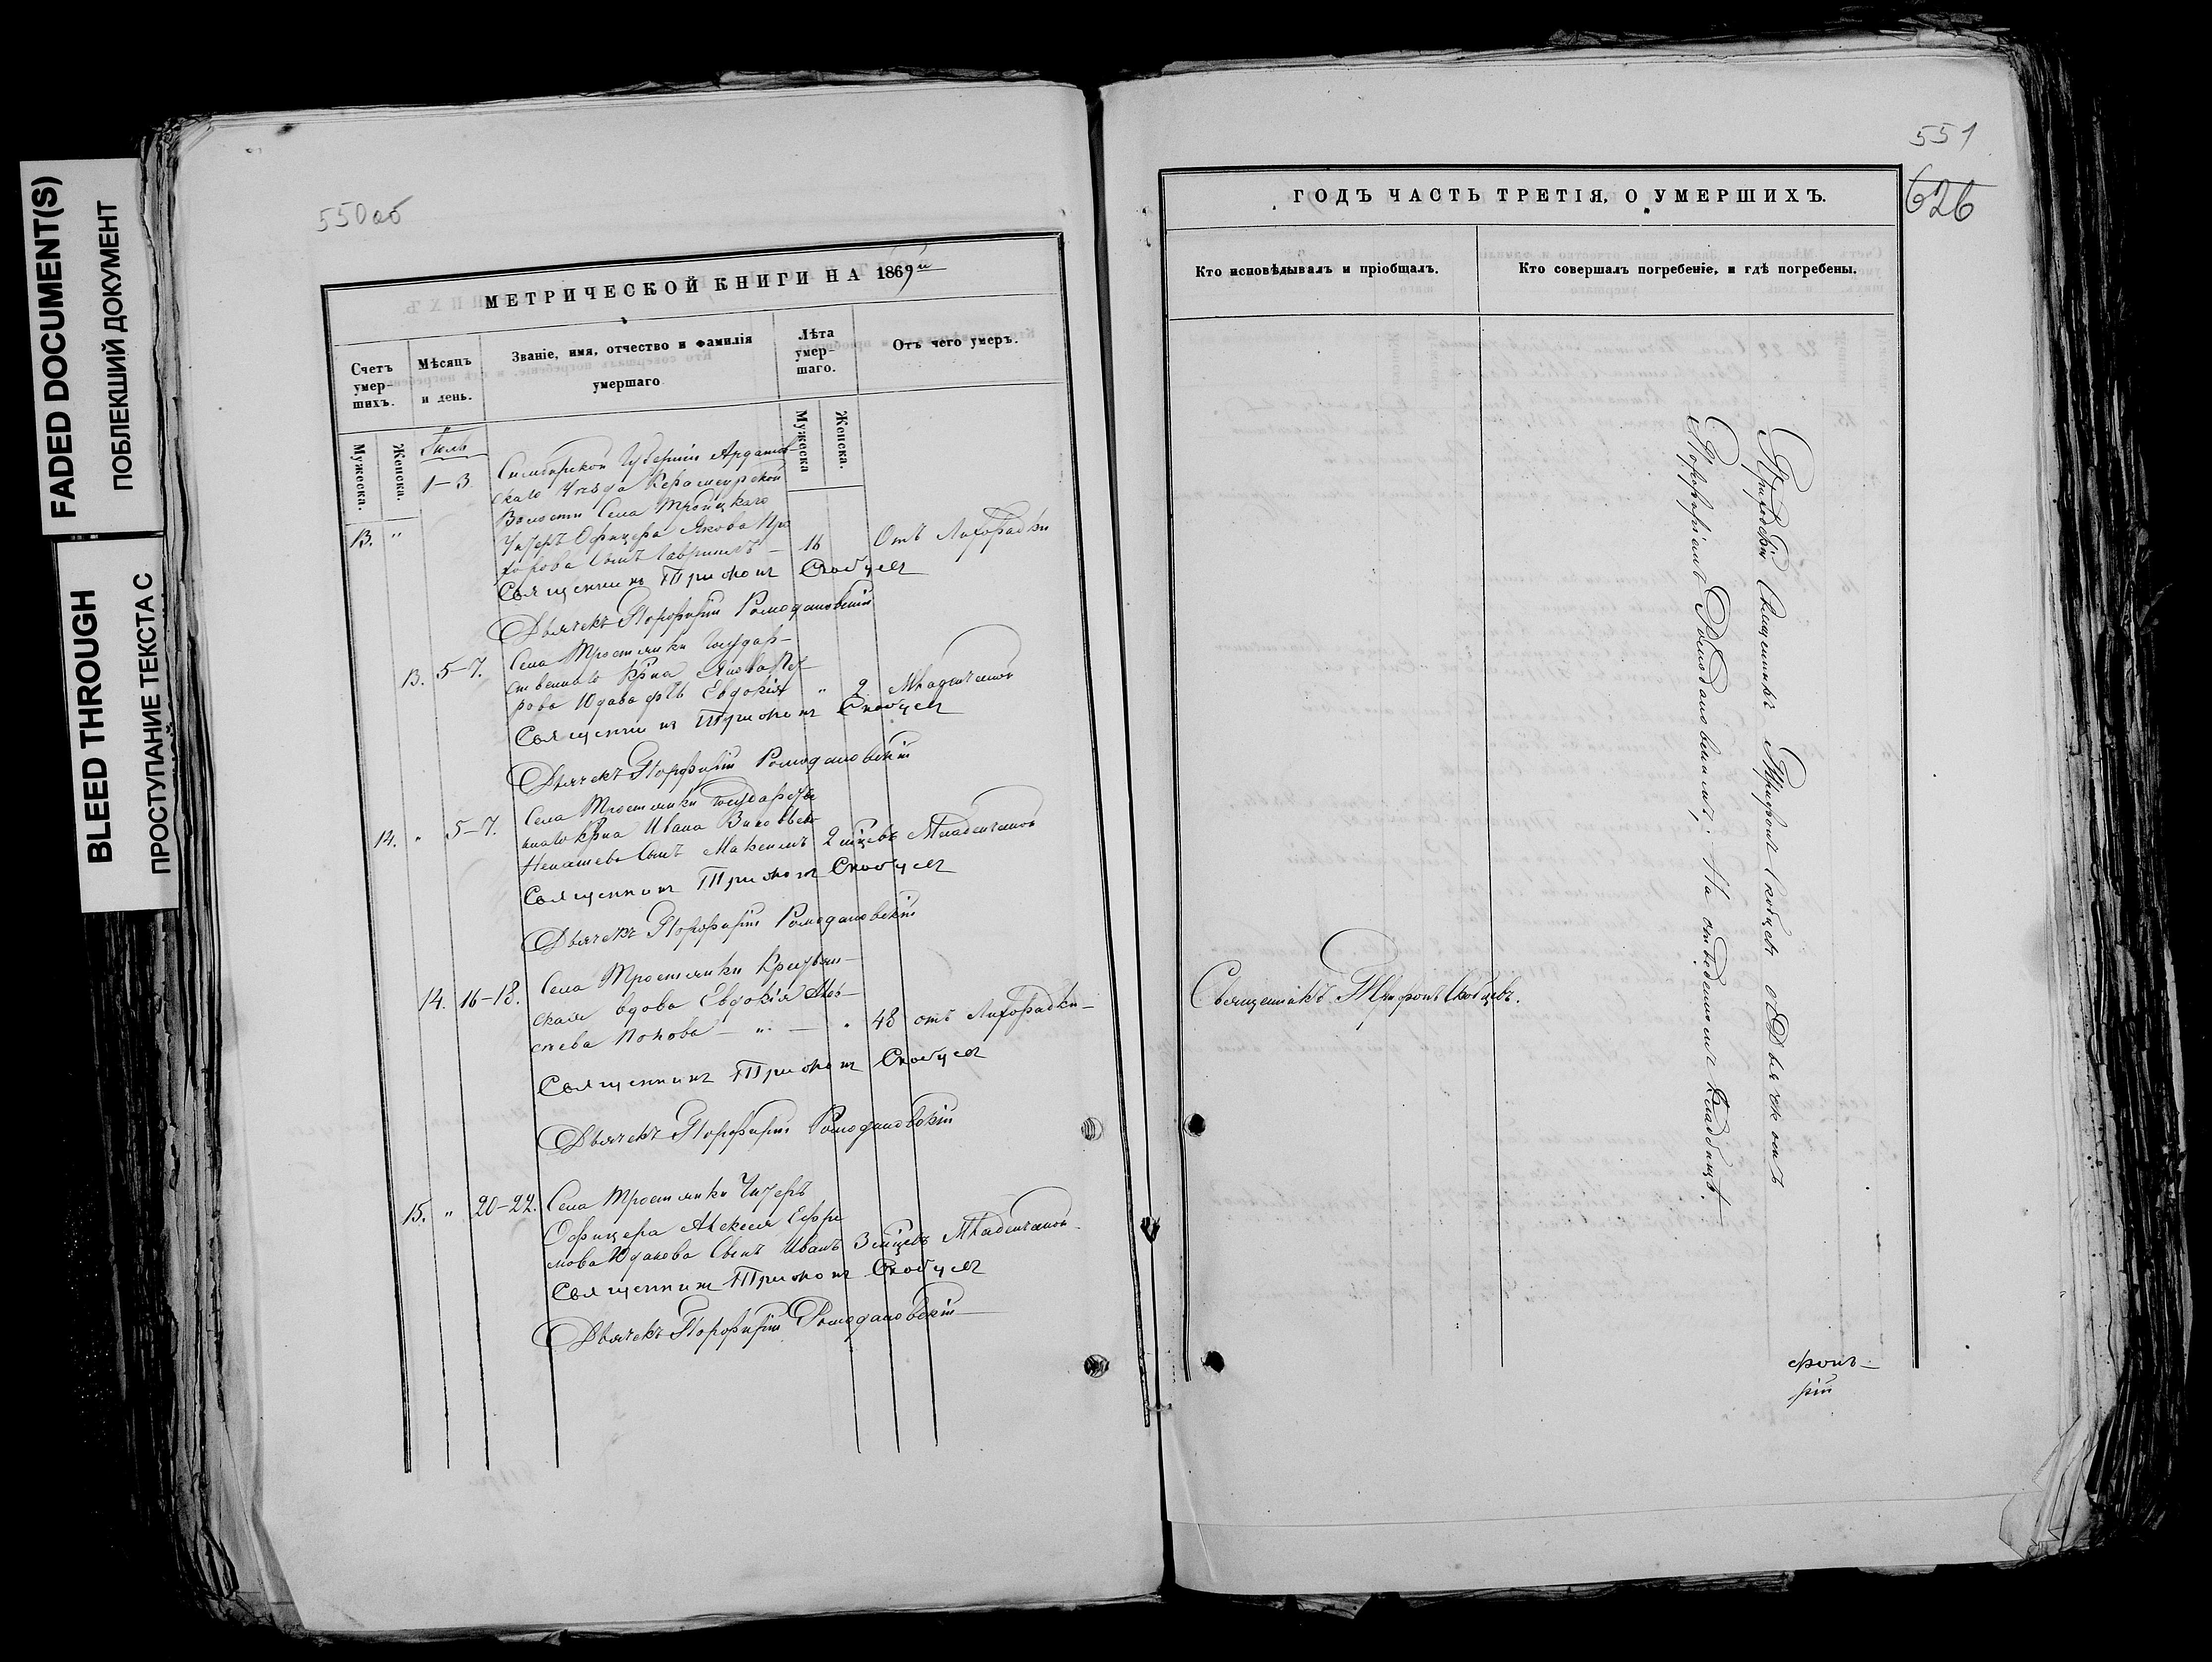 FADED DOCUMENT(S)
ПОБЛЕКШИЙ ДОКУМЕНТ
BLEED THROUGH
ПРОСТУПАНИЕ ТЕКСТА С
550об
МЕТРИЧЕСКОЙ КНИГИ НА 1869й
Счетъ умер-шихъ.
Мѣсяцъ и день.
Званіе, имя, отчество и фамилія умершаго
Лѣта умер-шаго.
Отъ чего умеръ.
Мужеска.
Женска.
Мужеска
Женска.
Іюль
13. " 1-3 Симбирской Губерніи Ардатов-
скаго Уѣзда
Волости Села Троицкаго
Унтеръ Офицера Якова Про
хорова Сынъ Гавріилъ - 16 Отъ Лихорадки
Священникъ Трифонъ Скобцевъ
Дьячекъ Порфирій Ромодановскій
13. 5-7. Села Тростянки Государ-
ственнаго Крна
дочь Евдокія " 2 Младенческой
Священникъ Трифонъ Скобцевъ
Дьячекъ Порфирій Ромодановскій
14. " 5-7. Села Тростянки Государстве
ннаго Крна Ивана
Сынъ Максимъ 2 мѣцевъ Младенческой
Священникъ Трифонъ Скобцевъ
Дьячекъ Порфирій Ромодановскій
14. 16-18. Села Тростянки Крестьян-
ская вдова Евдокія Алек-
сѣева Попова - " - " 48 отъ Лихорадки-
Священникъ Трифонъ Скобцевъ
Дьячекъ Порфирій Ромодановскій
15. " 20-22. Села Тростянки Унтеръ
Офицера Алексея Ефри
мова Юдакова Сынъ Иванъ 3 мѣцевъ Младенческой
Священникъ Трифонъ Скобцевъ
Дьячекъ Порфирій Ромодановскій
551
626
ГОДЪ ЧАСТЬ ТРЕТІЯ, О УМЕРШИХЪ.
Кто исповѣдывалъ и пріобщалъ.
Кто совершалъ погребеніе, и гдѣ погребены.
Священникъ Трифонъ Скобцевъ.
Приходскій Священникъ Трифонъ Скобцевъ съ Дьячкомъ
Порфиріемъ Ромодановскимъ; На отведенномъ Кладбищѣ.
фонъ-
рій